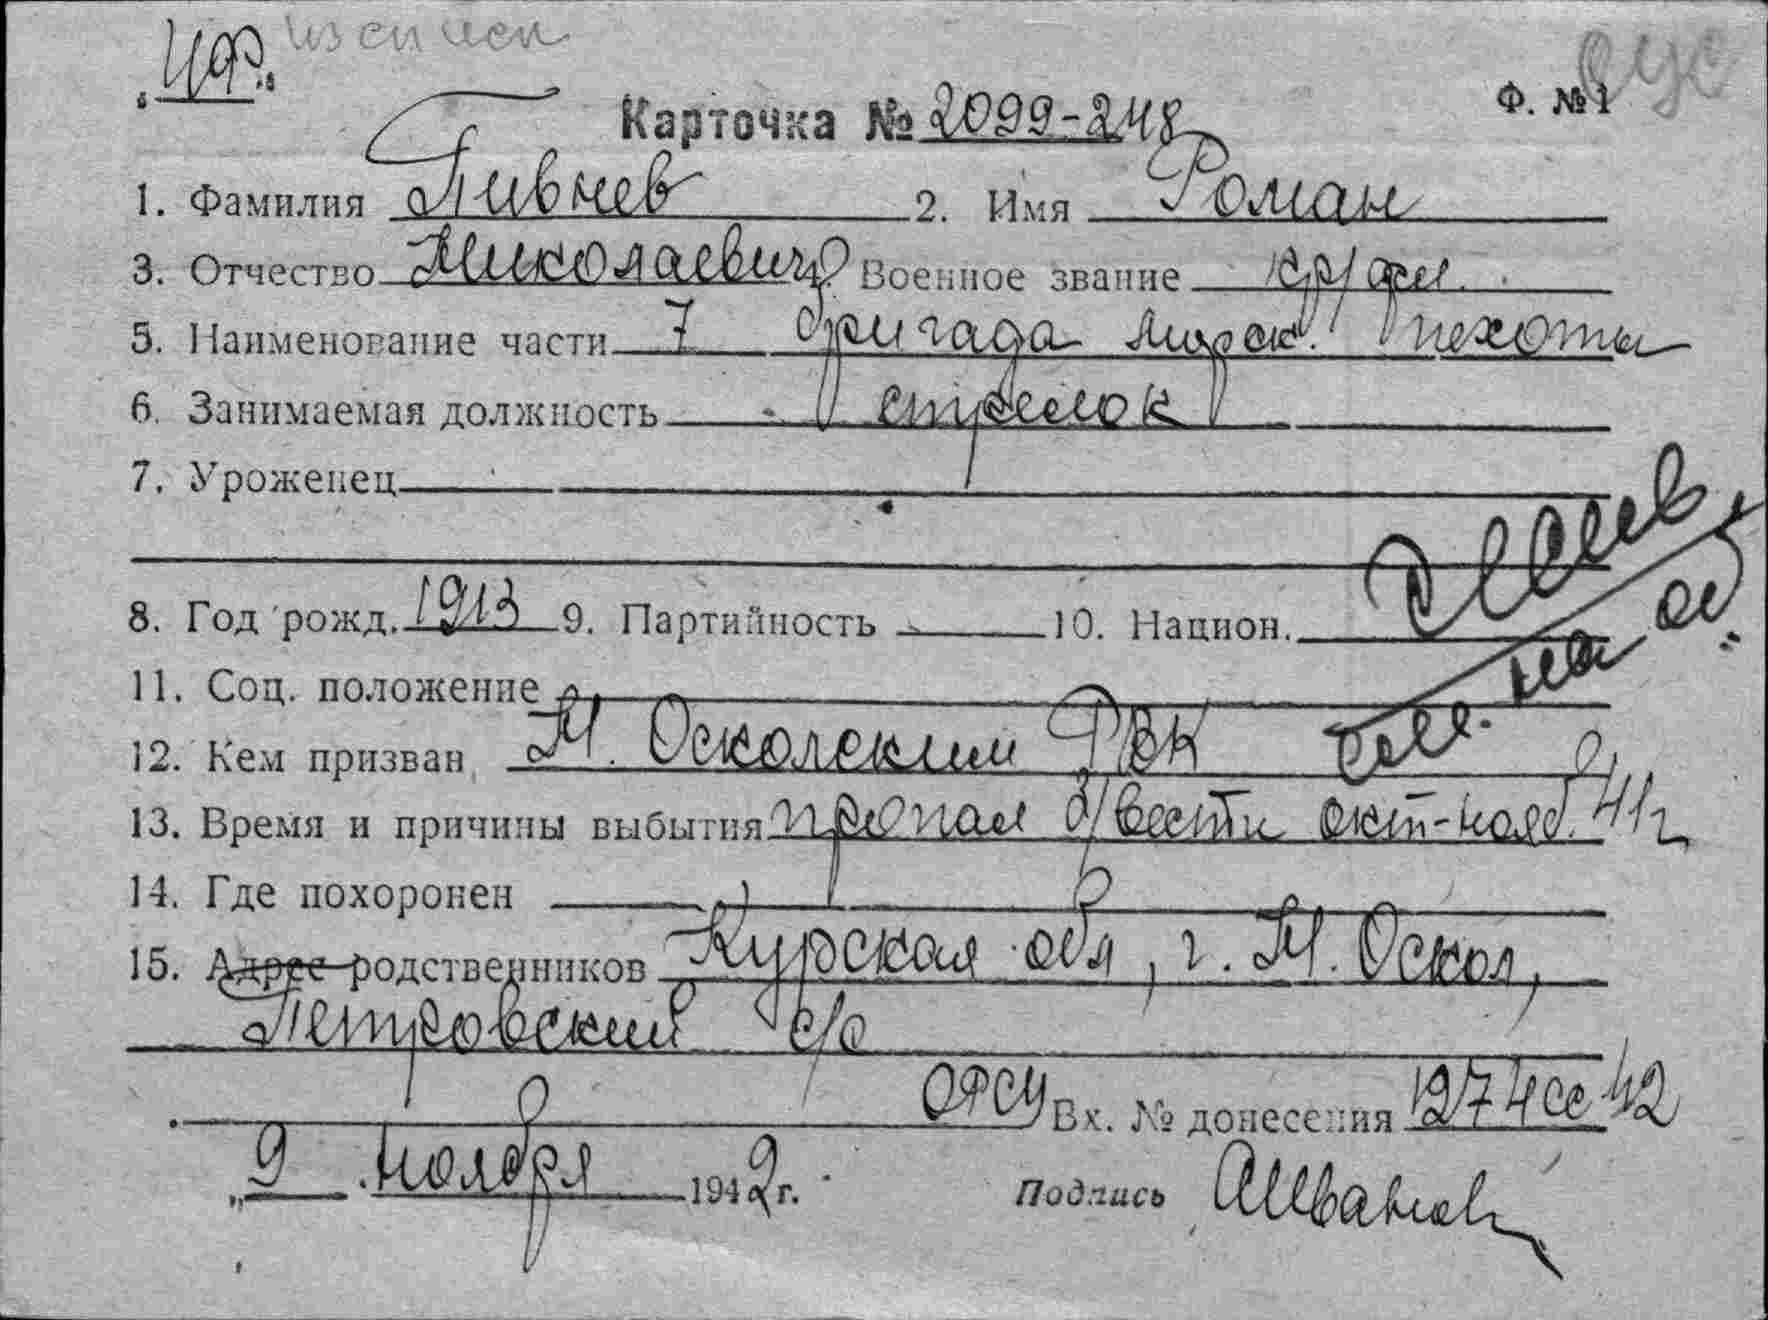 Ф. №1
Карточка № 2099-248
1. Фамилия Пивнев 2. Имя Роман
3. Отчество Николаевич Военное звание кр/фл.
5. Наименование части 7 бригада морск. пехоты
6. Занимаемая должность стрелок
7. Уроженец
8. Год рожд. 1913 9. Партийность 10. Национ.
11. Соц. положение
12. Кем призван Н. Оскольским РВК
13. Время и причины выбытия пропал б/вести окт-нояб. 41г
14. Где похоронен
15. Адрес родственников Курская обл, г. Н. Оскол,
Петровский с/с
Вх. № донесения 1274сс 42
„9 ноября 1942г. Подпись